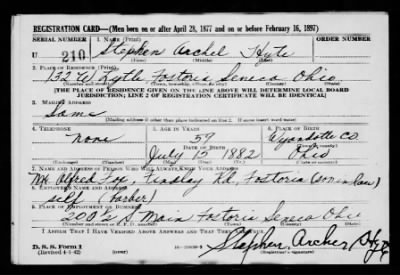 REGISTRATION CARD—(Men born on or after April 28, 1877 and on or before February 16, 1897)
SERIAL NUMBER 1. NAME (Print) ORDER NUMBER
U 210 Stephen Archel Hyte
(First) (Middle) (Last)
2. PLACE OF RESIDENCE (Print)
132 W Lytle Fostoria Seneca Ohio
[THE PLACE OF RESIDENCE GIVEN ON THE LINE ABOVE WILL DETERMINE LOCAL BOARD
JURISDICTION; LINE 2 OF REGISTRATION CERTIFICATE WILL BE IDENTICAL]
3. MAILING ADDRESS
Same
[Mailing address if other than place indicated on line 2. If same insert word same]
4. TELEPHONE 5. AGE IN YEARS 6. PLACE OF BIRTH
none 59 Wyandotte Co.
DATE OF BIRTH
July 15 1882 Ohio
(Exchange) (Number) (Mo.) (Day) (Yr.) (State or country)
7. NAME AND ADDRESS OF PERSON WHO WILL ALWAYS KNOW YOUR ADDRESS
Mr Alfred Findlay Rd, Fostoria (son in law)
8. EMPLOYER'S NAME AND ADDRESS
self (barber)
9. PLACE OF EMPLOYMENT OR BUSINESS
200½ S Main Fostoria Seneca Ohio
I AFFIRM THAT I HAVE VERIFIED ABOVE ANSWERS AND THAT THEY ARE TRUE.
D. S. S. Form 1
(Revised 4-1-42) Stephen Archer Hyte